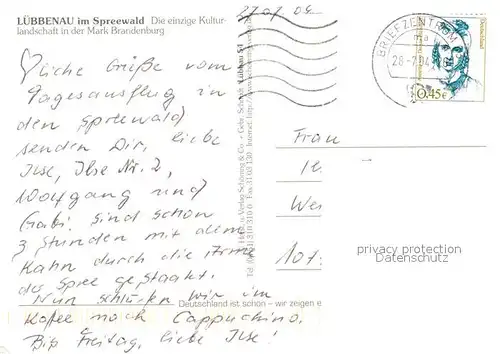 LÜBBENAU im Spreewald Die einzige Kultur-
landschaft in der Mark Brandenburg
27.07.04
Herzliche Grüße vom
Tagesausflug in
den Spreewald
senden Dir, liebe
Ilse, Ilse Nr. 2,
Wolfgang und
Gabi. Sind schon
3 Stunden mit dem
Kahn durch die Arme
der Spree gestaakt.
Nun schlürfen wir im
Kaffee noch Cappuchino.
Bis Freitag, liebe Ilse!
Deutschland ist schön – wir zeigen e
BRIEFZENTRUM
28.-7.04
Deutschland
0,45€
Frau
We
101
privacy protection
Datenschutz